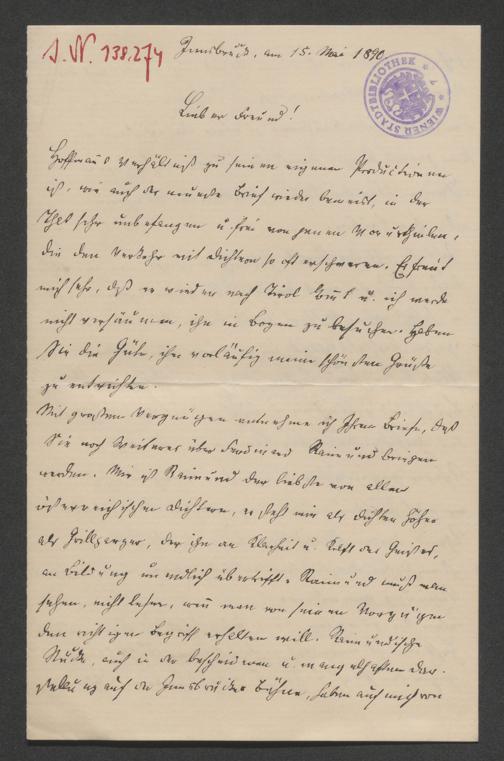 J. N. 138.274
Innsbruck, am 15. Mai 1890
WIENER STADTBIBLIOTHEK
Lieber Freund!
Hoffmanns Verhältniß zu seinen eigenen Productionen
ist, wie auch der neueste Brief wieder beweist, in der
That sehr unbefangen u. frei von jenen Vorurtheilen,
die den Verkehr mit Dichtern so oft erschweren. Es freut
mich sehr, daß er wieder nach Tirol kommt u. ich werde
nicht versäumen, ihn in Bozen zu besuchen. Haben
Sie die Güte, ihm vorläufig meine schönsten Grüße
zu entrichten.
Mit großem Vergnügen entnehme ich Ihrem Briefe, daß
Sie noch Weiteres über Ferdinand Raimund bringen
werden. Mir ist Raimund der liebste von allen
österreichischen Dichtern, er steht mir als Dichter höher
als Grillparzer, der ihn an Klarheit u. Kraft des Geistes,
an Bildung unendlich übertrifft. Raimund muß man
sehen, nicht lesen, wenn man von seinen Vorzügen
den richtigen Begriff erhalten will. Raimundische
Stücke, auch in der bescheidenen u. mangelhaften Dar-
stellung auf der Innsbrucker Bühne, haben auf mich von